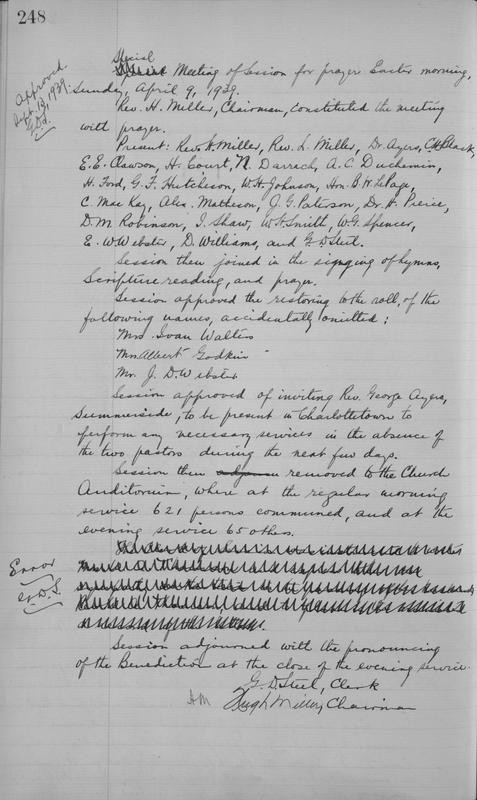 248
Approved.
Sept. 13, 1939.
G.D.S.
Special
Meeting of Session for prayer Easter morning,
Sunday, April 9, 1939.
Rev. H. Miller, Chairman, constituted the meeting
with prayer.
Present: Rev. H. Miller, Rev. L. Miller, Dr. Ayers, C.H. Black,
E.E. Clawson, H. Court, N. Darrach, A.C. Duchemin,
H. Ford, G.F. Hutcheson, W.H. Johnson, Hon. B.W. LePage,
C. MacKay, Alex. Matheson, J.G. Paterson, Dr. H. Peirce,
D.M. Robinson, I. Shaw, W.H. Smith, W.G. Spencer,
E.W. Webster, D. Williams, and G.D. Steel.
Session then joined in the signging of hymns,
Scripture reading, and prayer.
Session approved the restoring to the roll, of the
following names, accidentally omitted:
Mrs. Ivan Walters
Mrs. Albert Godkin
Mr. J.D. Webster
Session approved of inviting Rev. George Ayers,
Summerside, to be present in Charlottetown to
perform any necessary services in the absence of
the two pastors during the next few days.
Session then removed to the Church
Auditorium, where at the regular morning
service 621 persons communed, and at the
evening service 65 others.
Error
G.D.S.
Session adjourned with the pronouncing
of the Benediction at the close of the evening service.
G.D. Steel, Clerk
HM
Hugh Miller, Chairman